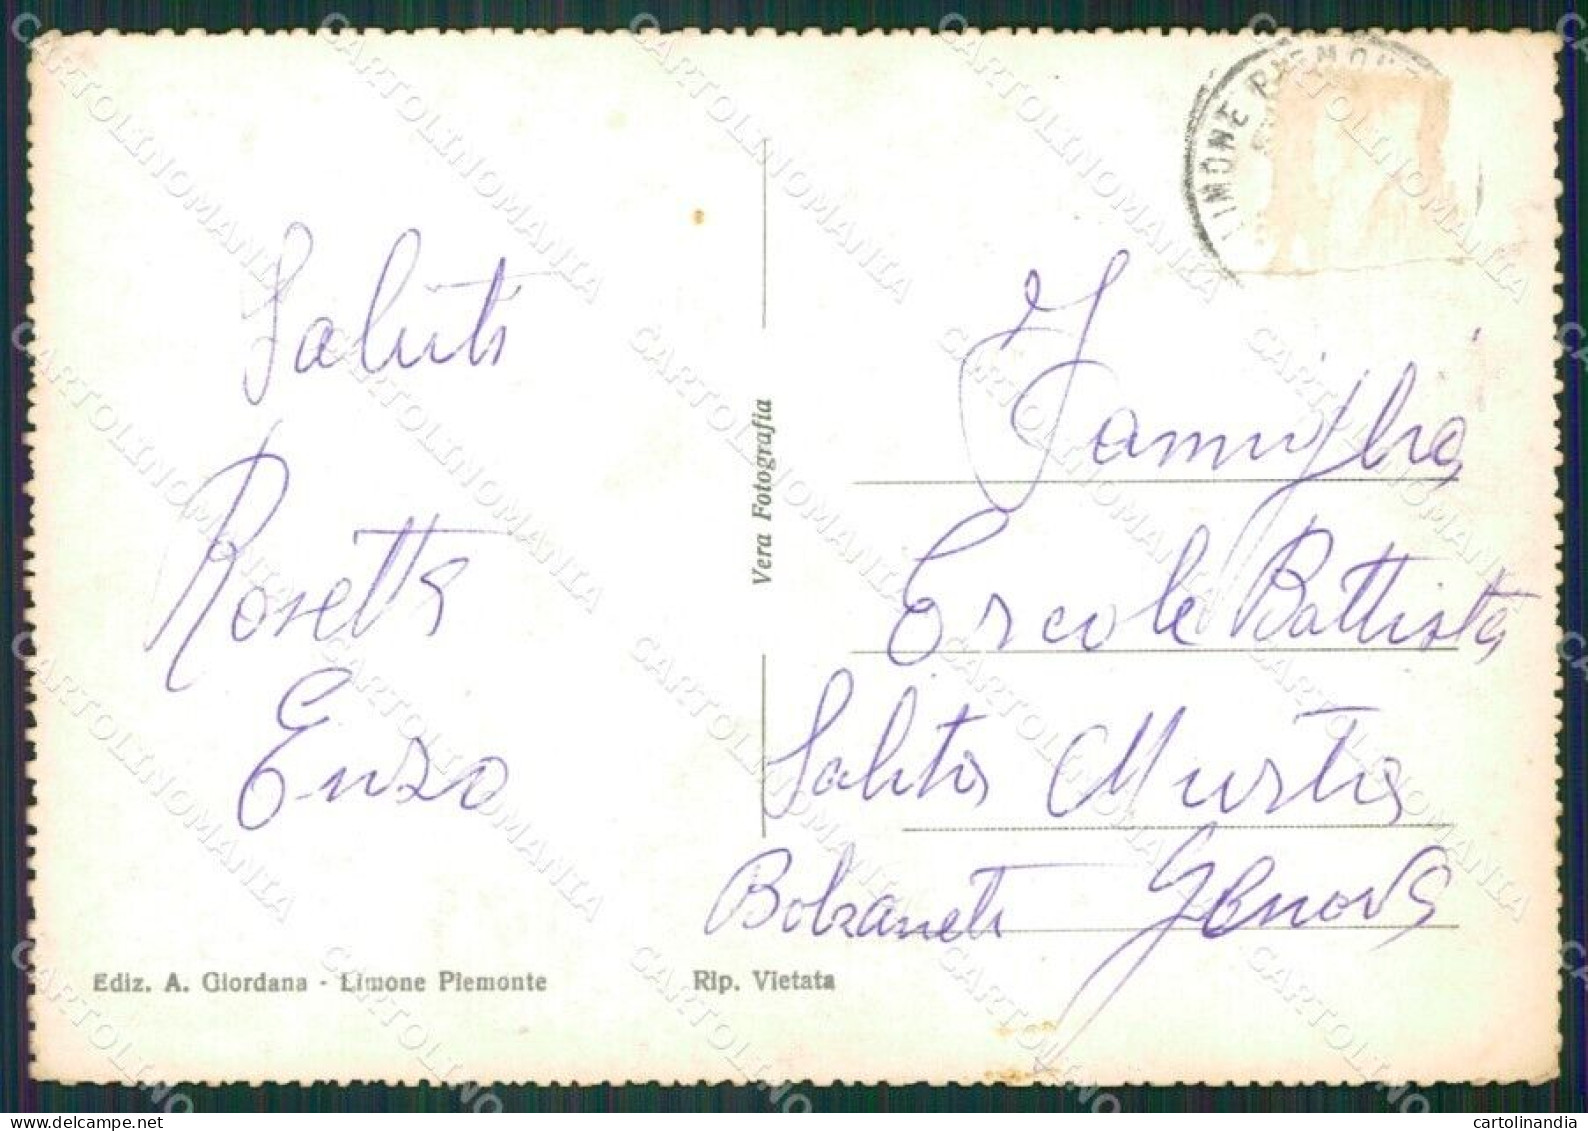 LIMONE PIEMONTE
Saluti
Rosetta
Enzo
Famiglia
Ercole Battista
Salita Murta
Bolzaneti Genova
Vera Fotografia
Ediz. A. Giordana - Limone Piemonte
Rip. Vietata
CARTOLINOMANIA
cartolinandia